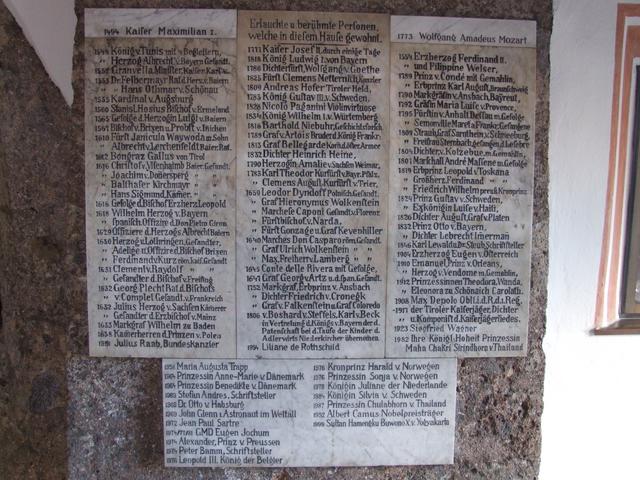 1494 Kaiser Maximilian I.
1548 König v. Tunis mit Begleitern,
" Herzog Albrecht v. Bayern Gesandt.
Granvella Minister, Kaiser Karl V.
" Hans Othmar v. Schönau
Kardinal v. Augsburg
Stanisl. Hosius Bischof v. Ermeland
Gefolge d. Herzogin Ludgl v. Baiern
Bischof v. Brixen u. Probst v. Insichen
Fürst Janicula Waywoda m. Sohn
Albrecht v. Lerchenfeldt Baier. Rat
Bongraz Gallus von Tirol
Joachim v. Donersperg
Balthasar Kirchmayr "
Hans Sigmund, Kämer. "
1616 Gefolge d Bischof Erzherz Leopold
1618 Wilhelm Herzog v. Bayern,
" spanisch. Offiziere d. Don Pietro Giron
1629 Offiziere d. Herzogs Albrecht Baiern
1630 Herzog v. Lothringen, Gesandter,
" Adelige u. Offiziere d. Bischof Brixen
" Ferdinand v. Kurz kais. Gesandt
1631 Clement v. Raydolf "
" Gesandter d. Bischof v. Freising
1632 Georg Plecht Rat d. Bischofs
" v. Complet Gesandt. v. Frankreich
1632 Julius Herzog v. Sachsen Kämerer
" Gesandter d. Erzbischof v. Mainz
1633 Markgraf Wilhelm zu Baden
1638 Kaiserherren d. Prinzen v. Polen
1951 Julius Raab, Bundeskanzler
Erlauchte u berühmte Personen,
welche in diesem Hause gewohnt.
1777 Kaiser Josef II. durch einige Tage
1818 König Ludwig I. von Bayern
1786 Dichterfürst, Wolfgang v. Goethe
1825 Fürst Clemens Metternich, Kanzler
1809 Andreas Hofer Tiroler Held,
1783 König Gustav III. v. Schweden,
1828 Nicolo Paganini Violinvirtuose
1834 König Wilhelm I. v. Württemberg
1816 Barthold Niebuhr, Geschichtsforsch.
1789 Graf v. Artois Bruder d. König Frankr.
1815 Graf Bellegarde Kom. d. Öster. Armee
1832 Dichter Heinrich Heine,
1790 Herzogin Amalie v. Sachsen Weimar,
1783 Karl Theodor Kurfürst v. Bayr. Pfalz,
" Clemens August. Kurfürst v. Trier,
1650 Leodor Dyndorf Polnisch. Gesandt.
" Graf Hieronymus Wolkenstein
" Marchese Caponi Gesandt. v. Florenz
" Fürstbischof v. Narda,
" Fürst Gonzage u. Graf Kevenhiller
1640 Marches Don Casparo röm. Gesandt.
" Graf Ulrich Wolkenstein "
" Max. Freiherr v. Lamberg "
1645 Conte delle Rivera mit Gefolge,
1651 Graf Georg v. Artz u. d. Span. Gesandt.
1752 Markgraf, Erbprinz v. Ansbach
" Dichter Friedrich v. Cronegk
" Graf v. Falkenstein u. Graf Coloredo
1806 v. Boshard v. Steffels, Karl v. Beck
in Vertretung d. Königs v. Bayern d. der
Patenschaft bei d. Taufe der Kinder d.
Adlerwirts Niederkircher übernehmen.
1954 Liliane de Rothschild
1773 Wolfgang Amadeus Mozart
1554 Erzherzog Ferdinand II.
" und Philippine Welser,
1789 Prinz v. Condé mit Gemahlin,
" Erbprinz Karl August. Braunschweig
1790 Markgräfin v. Ansbach, Bayreut,
1792 Gräfin Maria Luise v. Provence,
1793 Fürstin v. Anhalt Dessau m. Gefolge
" Semonville Maret a. Frankr. Gefangene
1809 Straub, Graf Sarnthein, v. Schneeburg,
" Freiherr Sternbach, gefangen d. Gefolge,
1804 Dichter v. Kotzebue, m. Gemahlin
1801 Marschall André Massena m. Gefolge
1819 Erbprinz Leopold v. Toskana
" Großherz. Ferdinand "
" Friedrich Wilhelm preuß. Kronprinz
1829 Prinz Gustav v. Schweden,
" Exkönigin Luise v. Haiti,
1826 Dichter August, Graf v. Platen
1832 Prinz Otto v. Bayern,
" Dichter Lebrecht Imerman
1846 Karl Lewald u. Dr. Steub Schriftsteller
1904 Erzherzog Eugen v. Österreich
1910 Emanuel Prinz v. Orleans,
" Herzog v. Vendome m. Gemahlin,
1912 Prinzessinnen Theodora, Wanda,
Eleonora zu Schönaich Carolath.
1908 Max Depolo Obllt. i. d. R. d. I. Reg.
- 1971 der Tiroler Kaiserjäger, Dichter
u. Komponist d. Kaiserjägerliedes.
1923 Siegfried Wagner
1982 Ihre Königl. Hoheit Prinzessin
Maha Chakri Sirindhorn v. Thailand
Maria Augusta Trapp
Prinzessin Anne-Marie v. Dänemark
Prinzessin Benedikte v. Dänemark
Stefan Andres, Schriftsteller
Dr. Otto v. Habsburg
John Glenn 1. Astronaut im Weltall
1972 Jean Paul Sartre
GMD Eugen Jochum
Alexander, Prinz v. Preussen
Peter Bamm, Schriftsteller
Leopold III. König der Belgier
1976 Kronprinz Harald v. Norwegen
1976 Prinzessin Sonja v. Norwegen
1978 Königin Juliane der Niederlande
1985 Königin Silvia v. Schweden
1987 Prinzessin Chulabhorn v. Thailand
1952 Albert Camus Nobelpreisträger
Sultan Hamengku Buwono X v. Yogyakarta